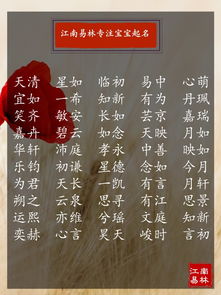 江南易林专注宝宝起名
天清 星如 临初 易中 心萌
宜如 一希 知新 有为 丹珮
笑齐 敏安 长如 芸京 嘉瑶
嘉卉 碧云 如念 天映 月如
华轩 沛庭 孝永 中善 映今
乐钧 初谦 星德 念如 如月
为君 天长 一凯 有言 今轩
朔之 云泉 思寻 言江 月景
运熙 亦恒 兮瑶 有庭 思新
奕赫 心言 昊天 峻时 知初
江南易林